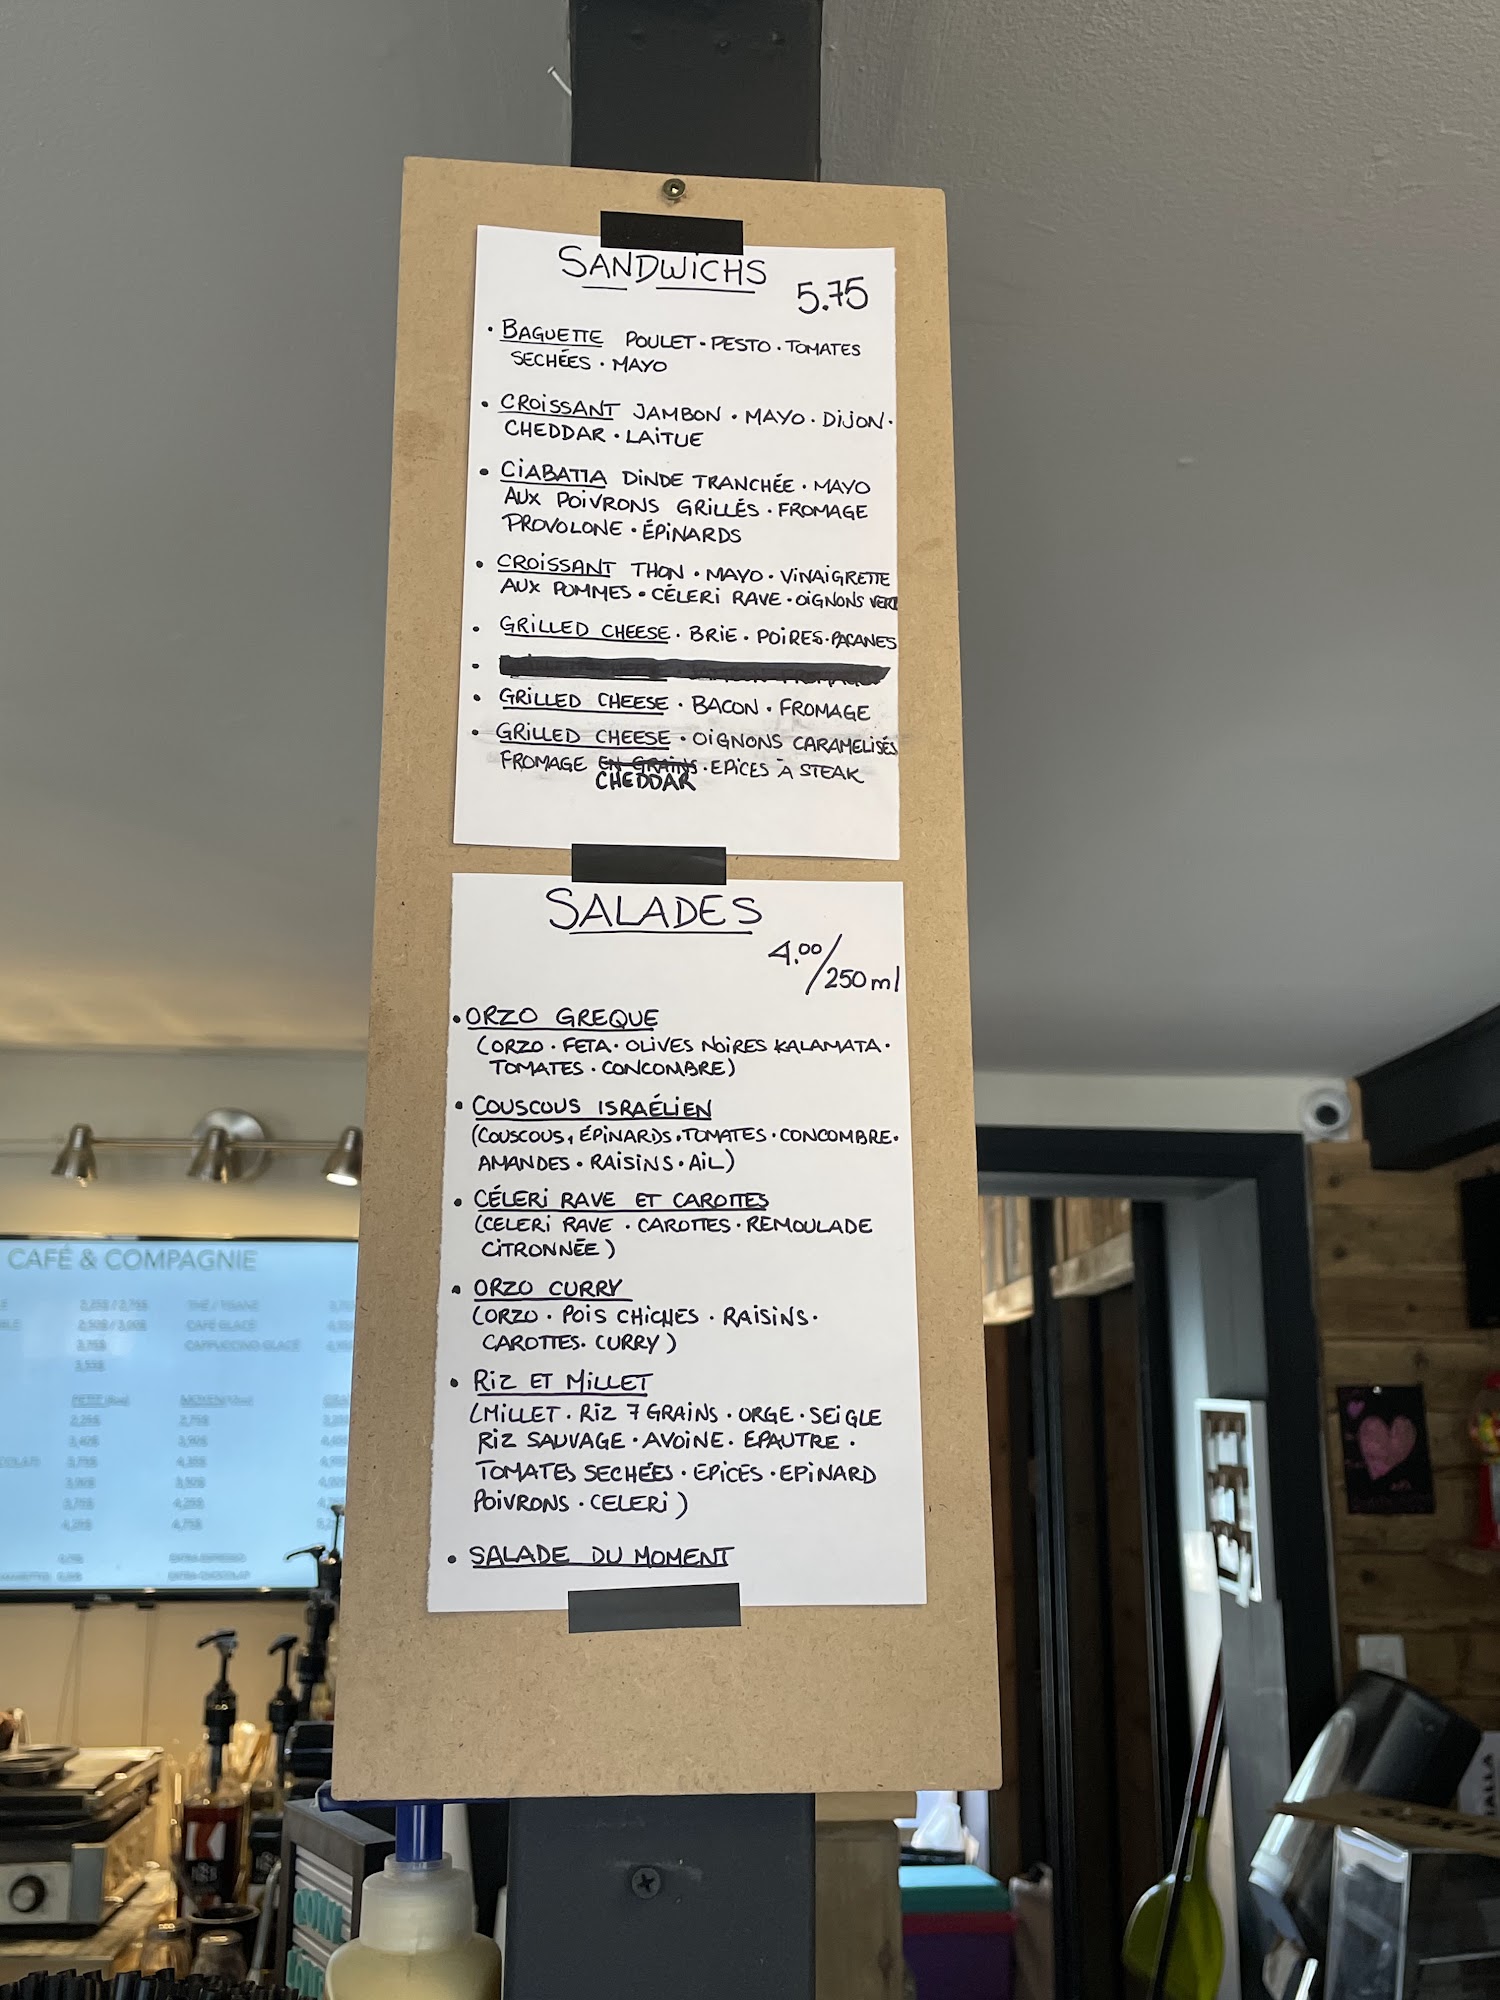 SANDWICHS
5.75
• BAGUETTE POULET • PESTO • TOMATES
SECHÉES • MAYO
• CROISSANT JAMBON • MAYO • DIJON •
CHEDDAR • LAITUE
• CIABATTA DINDE TRANCHÉE • MAYO
AUX POIVRONS GRILLÉS • FROMAGE
PROVOLONE • ÉPINARDS
• CROISSANT THON • MAYO • VINAIGRETTE
AUX POMMES • CÉLERI RAVE • OIGNONS VERT
• GRILLED CHEESE • BRIE • POIRES • PACANES
• GRILLED CHEESE • BACON • FROMAGE
• GRILLED CHEESE • OIGNONS CARAMELISÉS
FROMAGE EN GRAINS • EPICES À STEAK
CHEDDAR
SALADES
4.00/250ml
• ORZO GREQUE
(ORZO • FETA • OLIVES NOIRES KALAMATA •
TOMATES • CONCOMBRE)
• COUSCOUS ISRAÉLIEN
(COUSCOUS, ÉPINARDS • TOMATES • CONCOMBRE •
AMANDES • RAISINS • AIL)
• CÉLERI RAVE ET CAROTTES
(CELERI RAVE • CAROTTES • REMOULADE
CITRONNÉE)
• ORZO CURRY
(ORZO • POIS CHICHES • RAISINS •
CAROTTES • CURRY)
• RIZ ET MILLET
(MILLET • RIZ 7 GRAINS • ORGE • SEIGLE
RIZ SAUVAGE • AVOINE • EPAUTRE •
TOMATES SECHÉES • EPICES • EPINARD
POIVRONS • CELERI)
• SALADE DU MOMENT
CAFÉ & COMPAGNIE
2,25$ / 2,75$ THÉ / TISANE
2,50$ / 3,00$ CAFÉ GLACÉ
3,75$ CAPPUCCINO GLACÉ